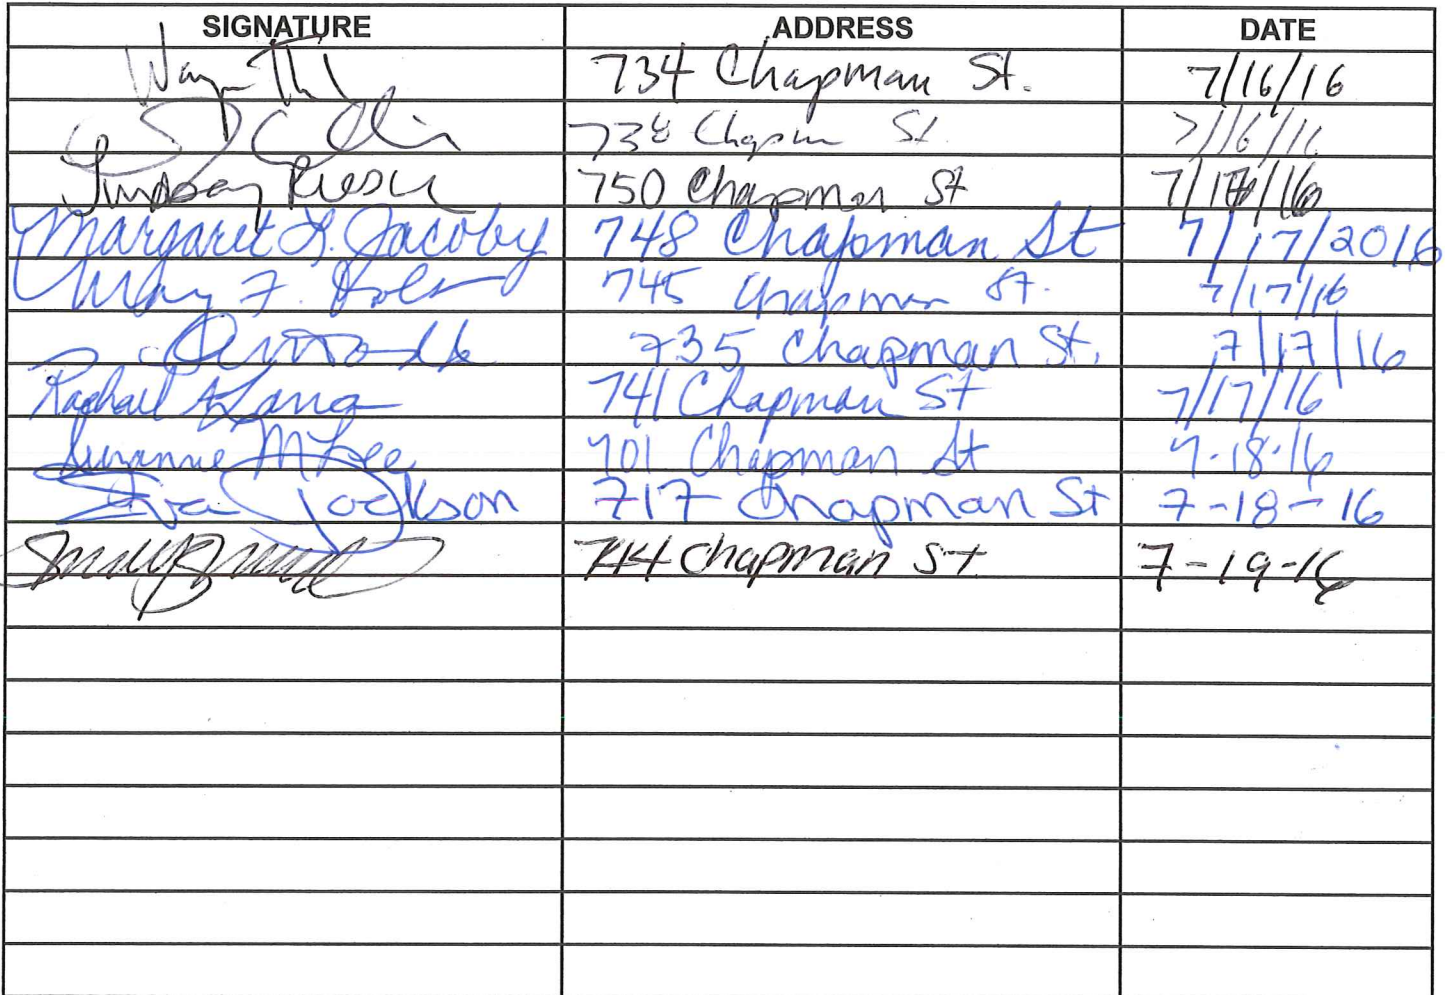 SIGNATURE ADDRESS DATE
734 Chapman St. 7/16/16
738 Chapm St 7/16/16
Lindsay 750 Chapman St
Margaret L. Jacoby 748 Chapman St 7/17/2016
May F. 745 Chapman St. 7/17/16
735 Chapman St. 7/17/16
Raphael A Lang 741 Chapman St 7/17/16
Suzanne M Lee 701 Chapman St 7-18-16
Eva Jackson 717 Chapman St 7-18-16
714 Chapman St 7-19-16